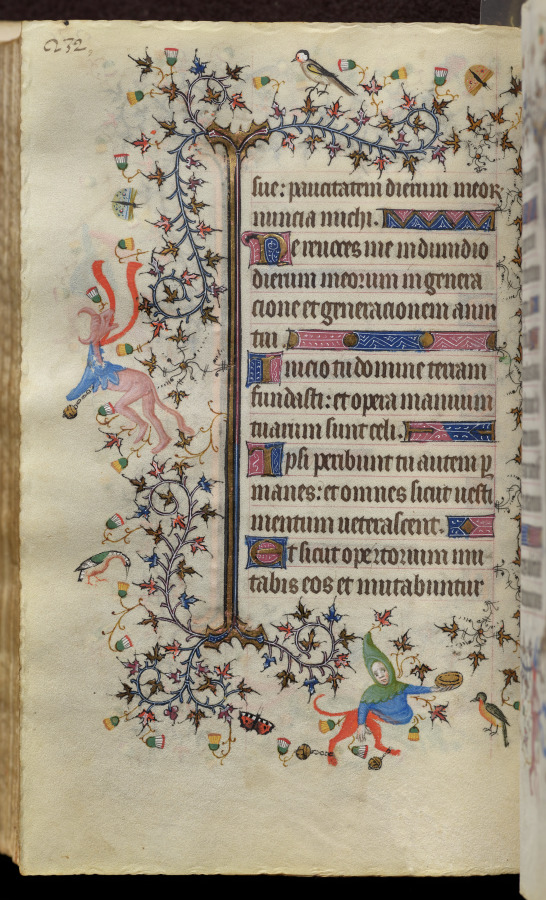 232,
sue: paucitatem dierum meor
nuncia michi.
Ne reuoces me in dimidio
dierum meorum in genera
cione et generacionem anni
tui.
Inicio tu domine terram
fundasti: et opera manuum
tuarum sunt celi.
Ipsi peribunt tu autem p
manes: et omnes sicut uesti
mentum ueterascent.
Et sicut opertorium mu
tabis eos et mutabuntur